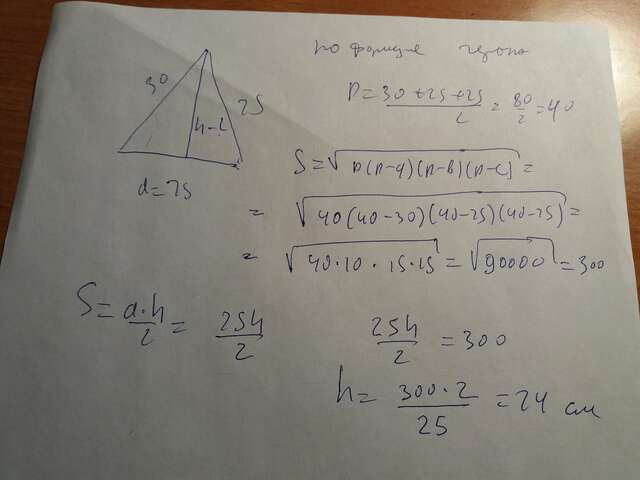 по формуле Герона
p = 30 + 25 + 25 / 2 = 80 / 2 = 40
S = √p(p-a)(p-b)(p-c) =
= √40(40-30)(40-25)(40-25) =
= √40·10·15·15 = √90000 = 300
25
30
h-?
a=25
S = a·h / 2 = 25h / 2
25h / 2 = 300
h = 300·2 / 25 = 24 см